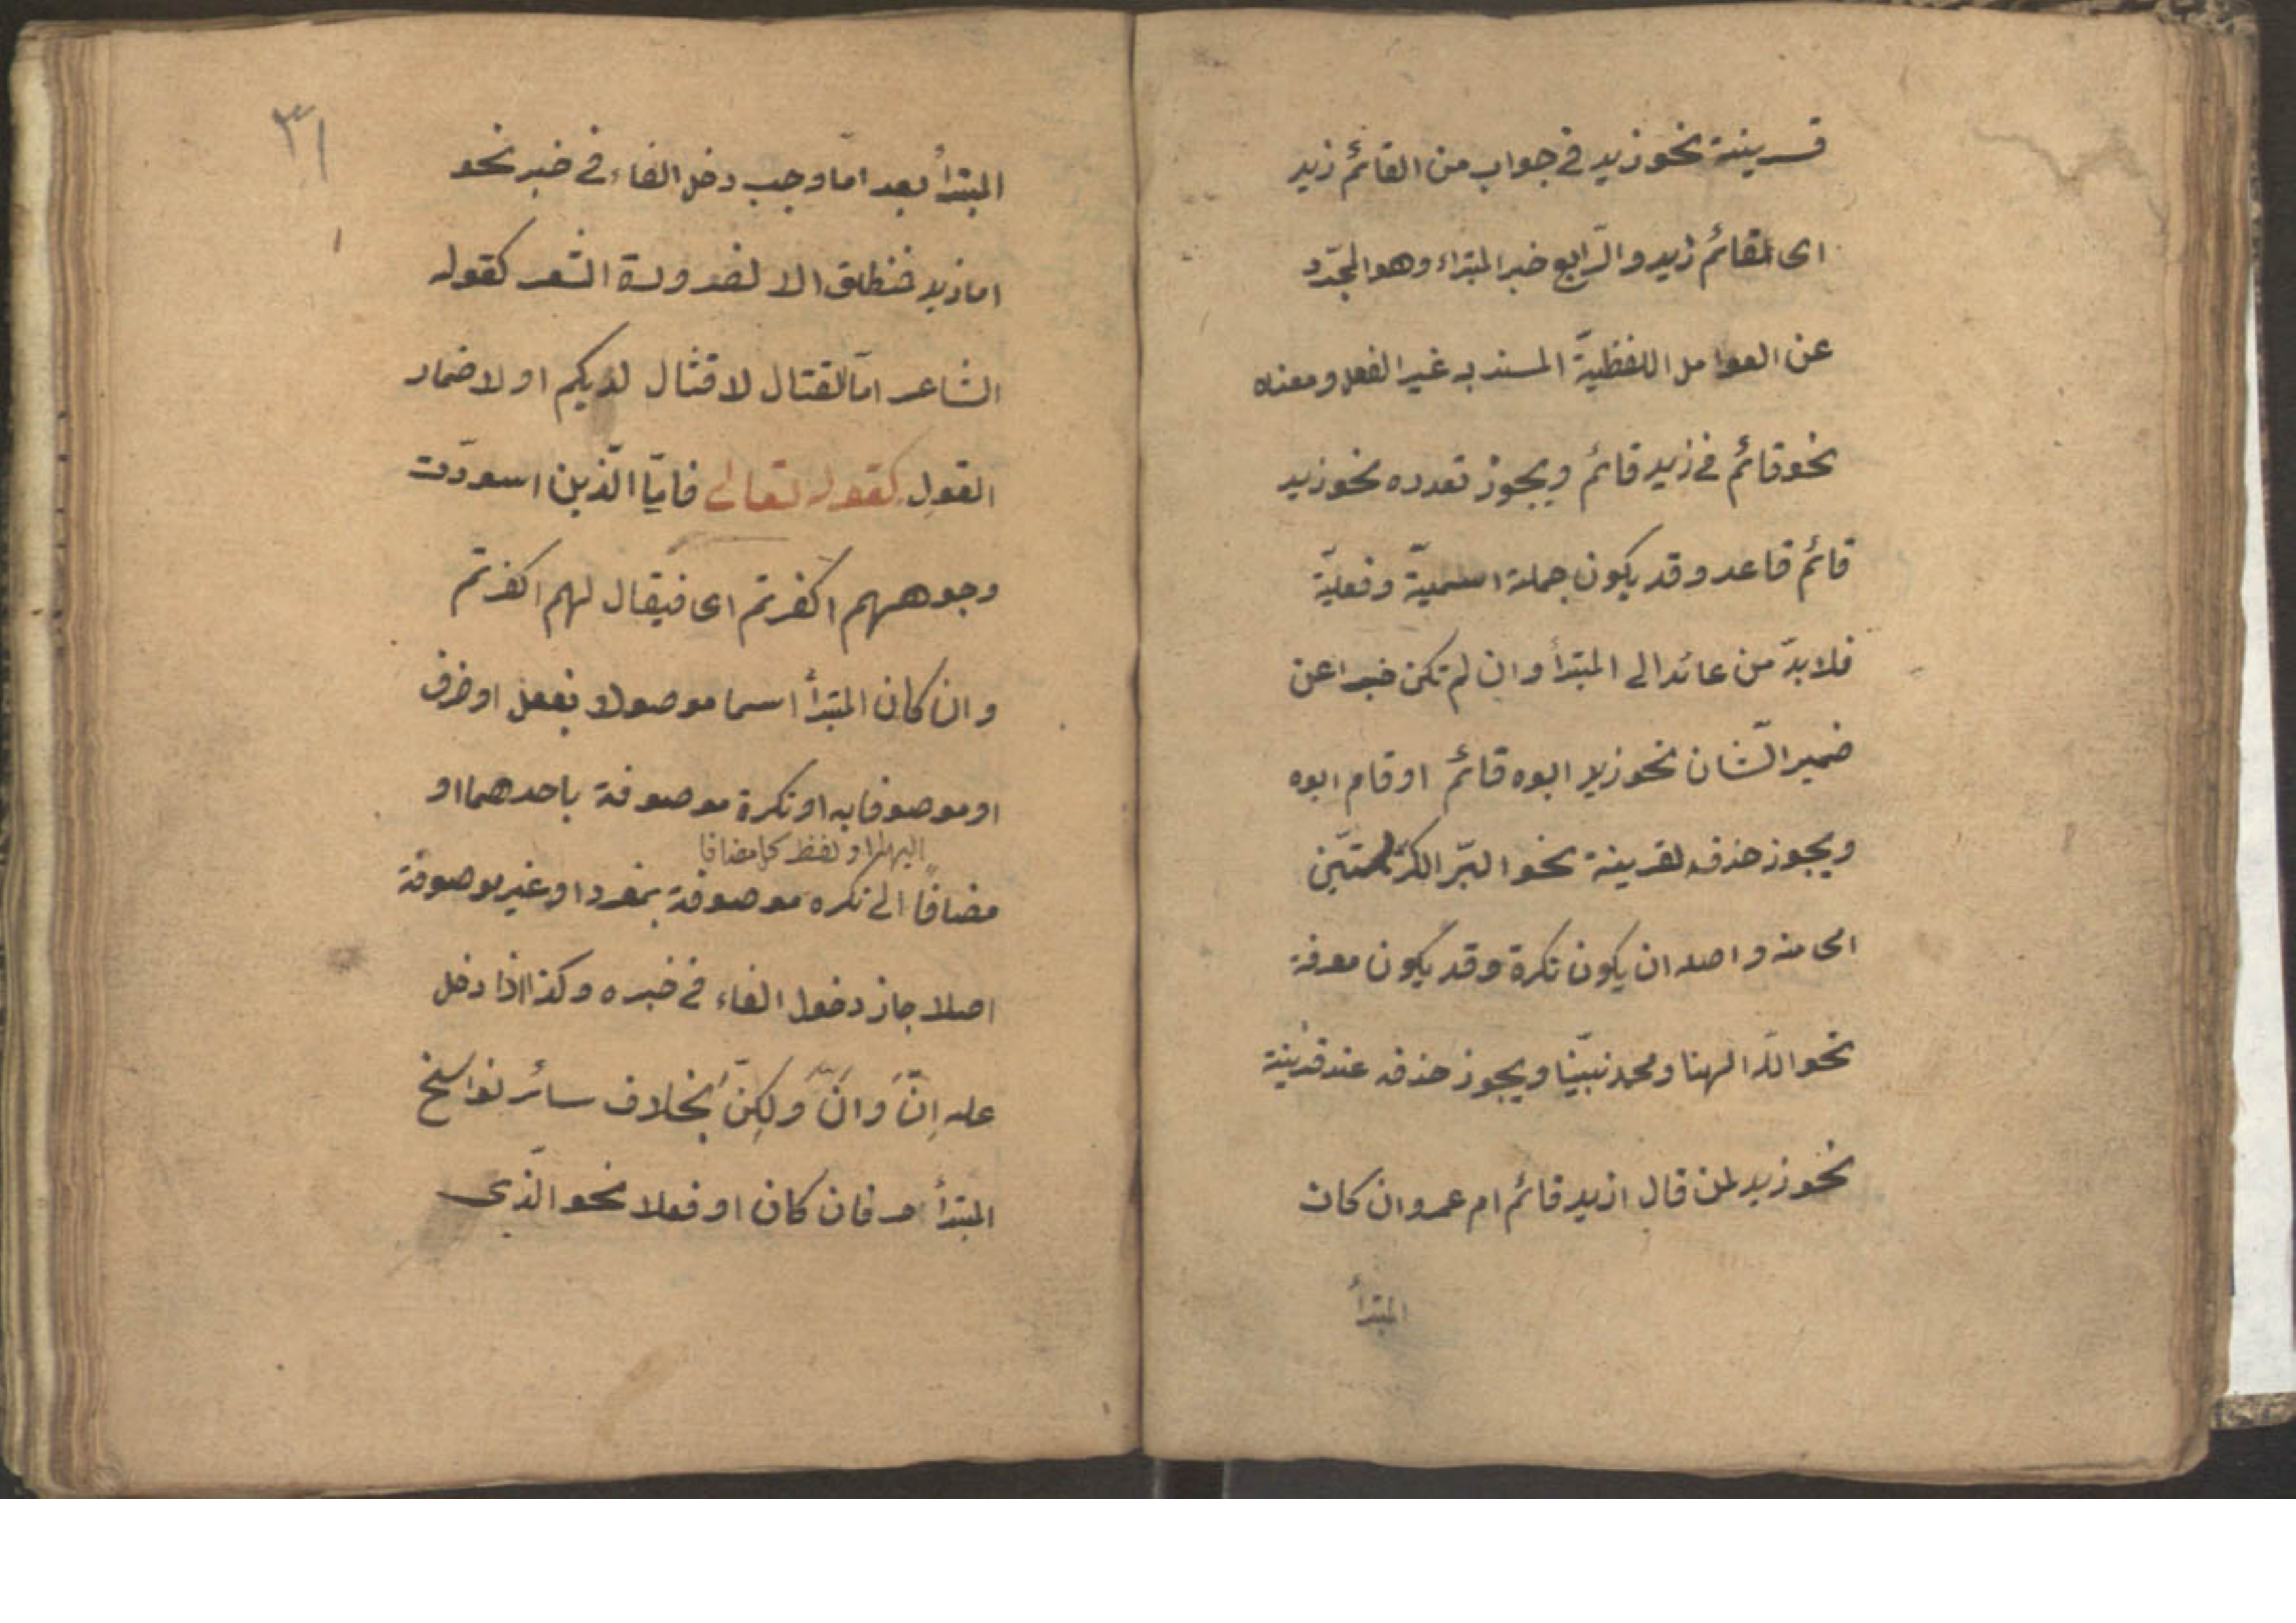 قرينة نحو زيد في جواب من القائم زيد
اى القائم زيد والرّابع خبر المبتداء وهو المجرّد
عن العوامل اللفظيّة المسند به غير الفعل ومعناه
نحو قائم في زيد قائم ويجوز تعدده نحو زيد
قائم قاعد وقد يكون جملة اسميّة وفعليّة
فلابدّ من عائد الى المبتدأ وان لم تكن خبرا عن
ضمير الشّان نحو زيد ابوه قائم او قام ابوه
ويجوز حذفه لقرينة نحو البرّ الكرّ بستّين
اى منه واصله ان يكون نكرة وقد يكون معرفة
نحو اللّه الهنا ومحمد نبيّنا ويجوز حذفه عند قرينة
نحو زيد لمن قال ازيد قائم ام عمرو ان كان
المبتدأ
٣١
المبتدأ بعد امّا وجب دخل الفاء في خبر نحو
اما زيد فنطلق الا لضرورة الشعر كقوله
الشاعر امّا القتال لا قتال لديكم او لاضمار
القول كقوله تعالى فامّا الّذين اسودّت
وجوههم اكفرتم اى فيقال لهم اكفرتم
وان كان المبتدأ اسما موصولا بفعل او ظرف
او موصوفا به او نكرة موصوفة باحدهما او
اليهما او لفظ كل مضافا
مضافًا الى نكره موصوفة بمفرد او غير موصوفة
اصلا جاز دخول الفاء في خبره وكذا اذا دخل
عله اِنّ وَانّ وَلكِنّ بخلاف سائر نواسخ
المبتدأ حرفان كان او فعلا نحو الّذى